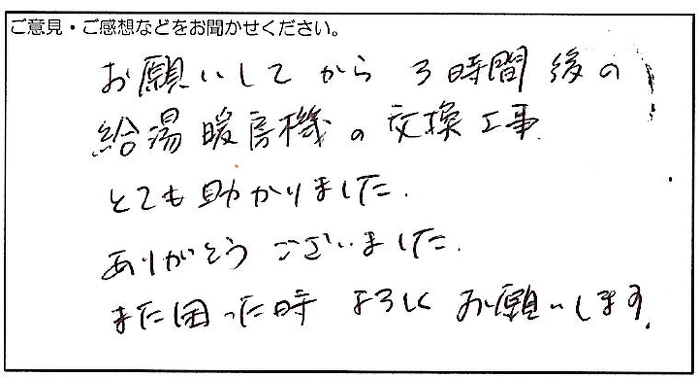 ご意見・ご感想などをお聞かせください。
お願いしてから 3時間後の
給湯暖房機の交換工事
とても助かりました.
ありがとうございました.
また困った時 よろしくお願いします.